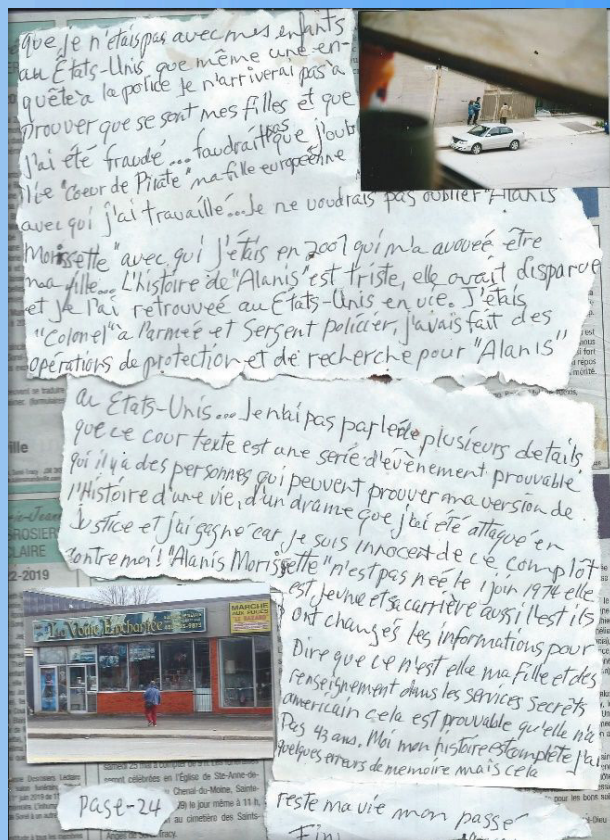 que je n'étais pas avec mes enfants
au États-Unis que même une en-
quête à la police je n'arriverai pas à
prouver que se sont mes filles et que
j'ai été fraudé... faudrait pas que j'oubl
"Coeur de Pirate" ma fille européenne
avec qui j'ai travaillé... Je ne voudrais pas oublier "Alanis
Morissette" avec qui j'étais en 2001 qui m'a avouée être
ma fille... L'histoire de "Alanis" est triste, elle avait disparue
et je l'ai retrouvée au États-Unis en vie. J'étais
"Colonel" à l'armée et Sergent policier, j'avais fait des
opérations de protection et de recherche pour "Alanis"
au États-Unis... Je n'ai pas parlé de plusieurs details
que ce cour texte est une serie d'évènement prouvable
qui il y a des personnes qui peuvent prouver ma version de
l'Histoire d'une vie, d'un drame que j'ai été attaqué en
Justice et j'ai gagné car je suis innocent de ce complot
contre moi! "Alanis Morissette" n'est pas née le 1 juin 1974 elle
est jeune et sa carrière aussi l'est ils
ont changés les informations pour
Dire que ce n'est elle ma fille et des
renseignement dans les services secrets
americain cela est prouvable qu'elle n'a
Pas 43 ans. Moi mon histoire est complète j'ai
quelques erreurs de memoire mais cela
reste ma vie mon passé
Fin
Page-24
La Porte Enchantée
MARCHÉ
AUX PUCES
LE BAZARD
2-2019
CLAIRE
ville
samedi 25 mai à compter de 9 h.
seront célébrées en l'Église de Ste-Anne-de-
Chenal-du-Moine, Sainte-
le jour même à 11 h.
au cimetière des Saints-